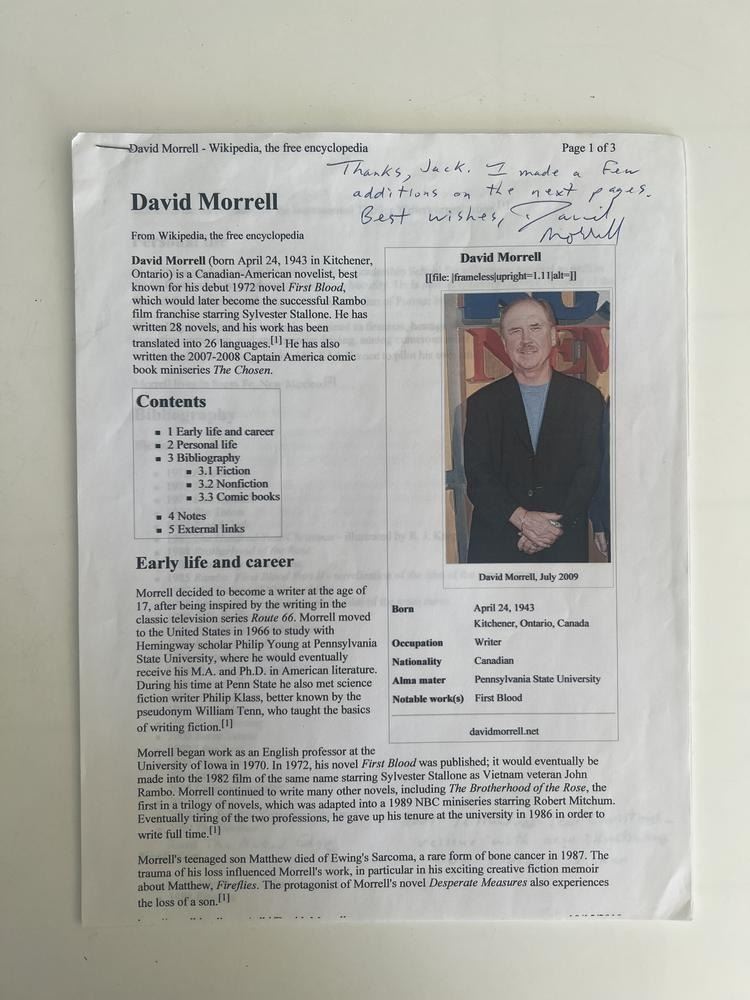 David Morrell - Wikipedia, the free encyclopedia
Page 1 of 3
Thanks, Jack. I made a few
additions on the next pages.
Best wishes, David
Morrell
David Morrell
From Wikipedia, the free encyclopedia
David Morrell (born April 24, 1943 in Kitchener,
Ontario) is a Canadian-American novelist, best
known for his debut 1972 novel First Blood,
which would later become the successful Rambo
film franchise starring Sylvester Stallone. He has
written 28 novels, and his work has been
translated into 26 languages.[1] He has also
written the 2007-2008 Captain America comic
book miniseries The Chosen.
Contents
▪ 1 Early life and career
▪ 2 Personal life
▪ 3 Bibliography
▪ 3.1 Fiction
▪ 3.2 Nonfiction
▪ 3.3 Comic books
▪ 4 Notes
▪ 5 External links
David Morrell
[[file: |frameless|upright=1.11|alt=]]
NEW
David Morrell, July 2009
Born April 24, 1943
Kitchener, Ontario, Canada
Occupation Writer
Nationality Canadian
Alma mater Pennsylvania State University
Notable work(s) First Blood
davidmorrell.net
Early life and career
Morrell decided to become a writer at the age of
17, after being inspired by the writing in the
classic television series Route 66. Morrell moved
to the United States in 1966 to study with
Hemingway scholar Philip Young at Pennsylvania
State University, where he would eventually
receive his M.A. and Ph.D. in American literature.
During his time at Penn State he also met science
fiction writer Philip Klass, better known by the
pseudonym William Tenn, who taught the basics
of writing fiction.[1]
Morrell began work as an English professor at the
University of Iowa in 1970. In 1972, his novel First Blood was published; it would eventually be
made into the 1982 film of the same name starring Sylvester Stallone as Vietnam veteran John
Rambo. Morrell continued to write many other novels, including The Brotherhood of the Rose, the
first in a trilogy of novels, which was adapted into a 1989 NBC miniseries starring Robert Mitchum.
Eventually tiring of the two professions, he gave up his tenure at the university in 1986 in order to
write full time.[1]
Morrell's teenaged son Matthew died of Ewing's Sarcoma, a rare form of bone cancer in 1987. The
trauma of his loss influenced Morrell's work, in particular in his exciting creative fiction memoir
about Matthew, Fireflies. The protagonist of Morrell's novel Desperate Measures also experiences
the loss of a son.[1]